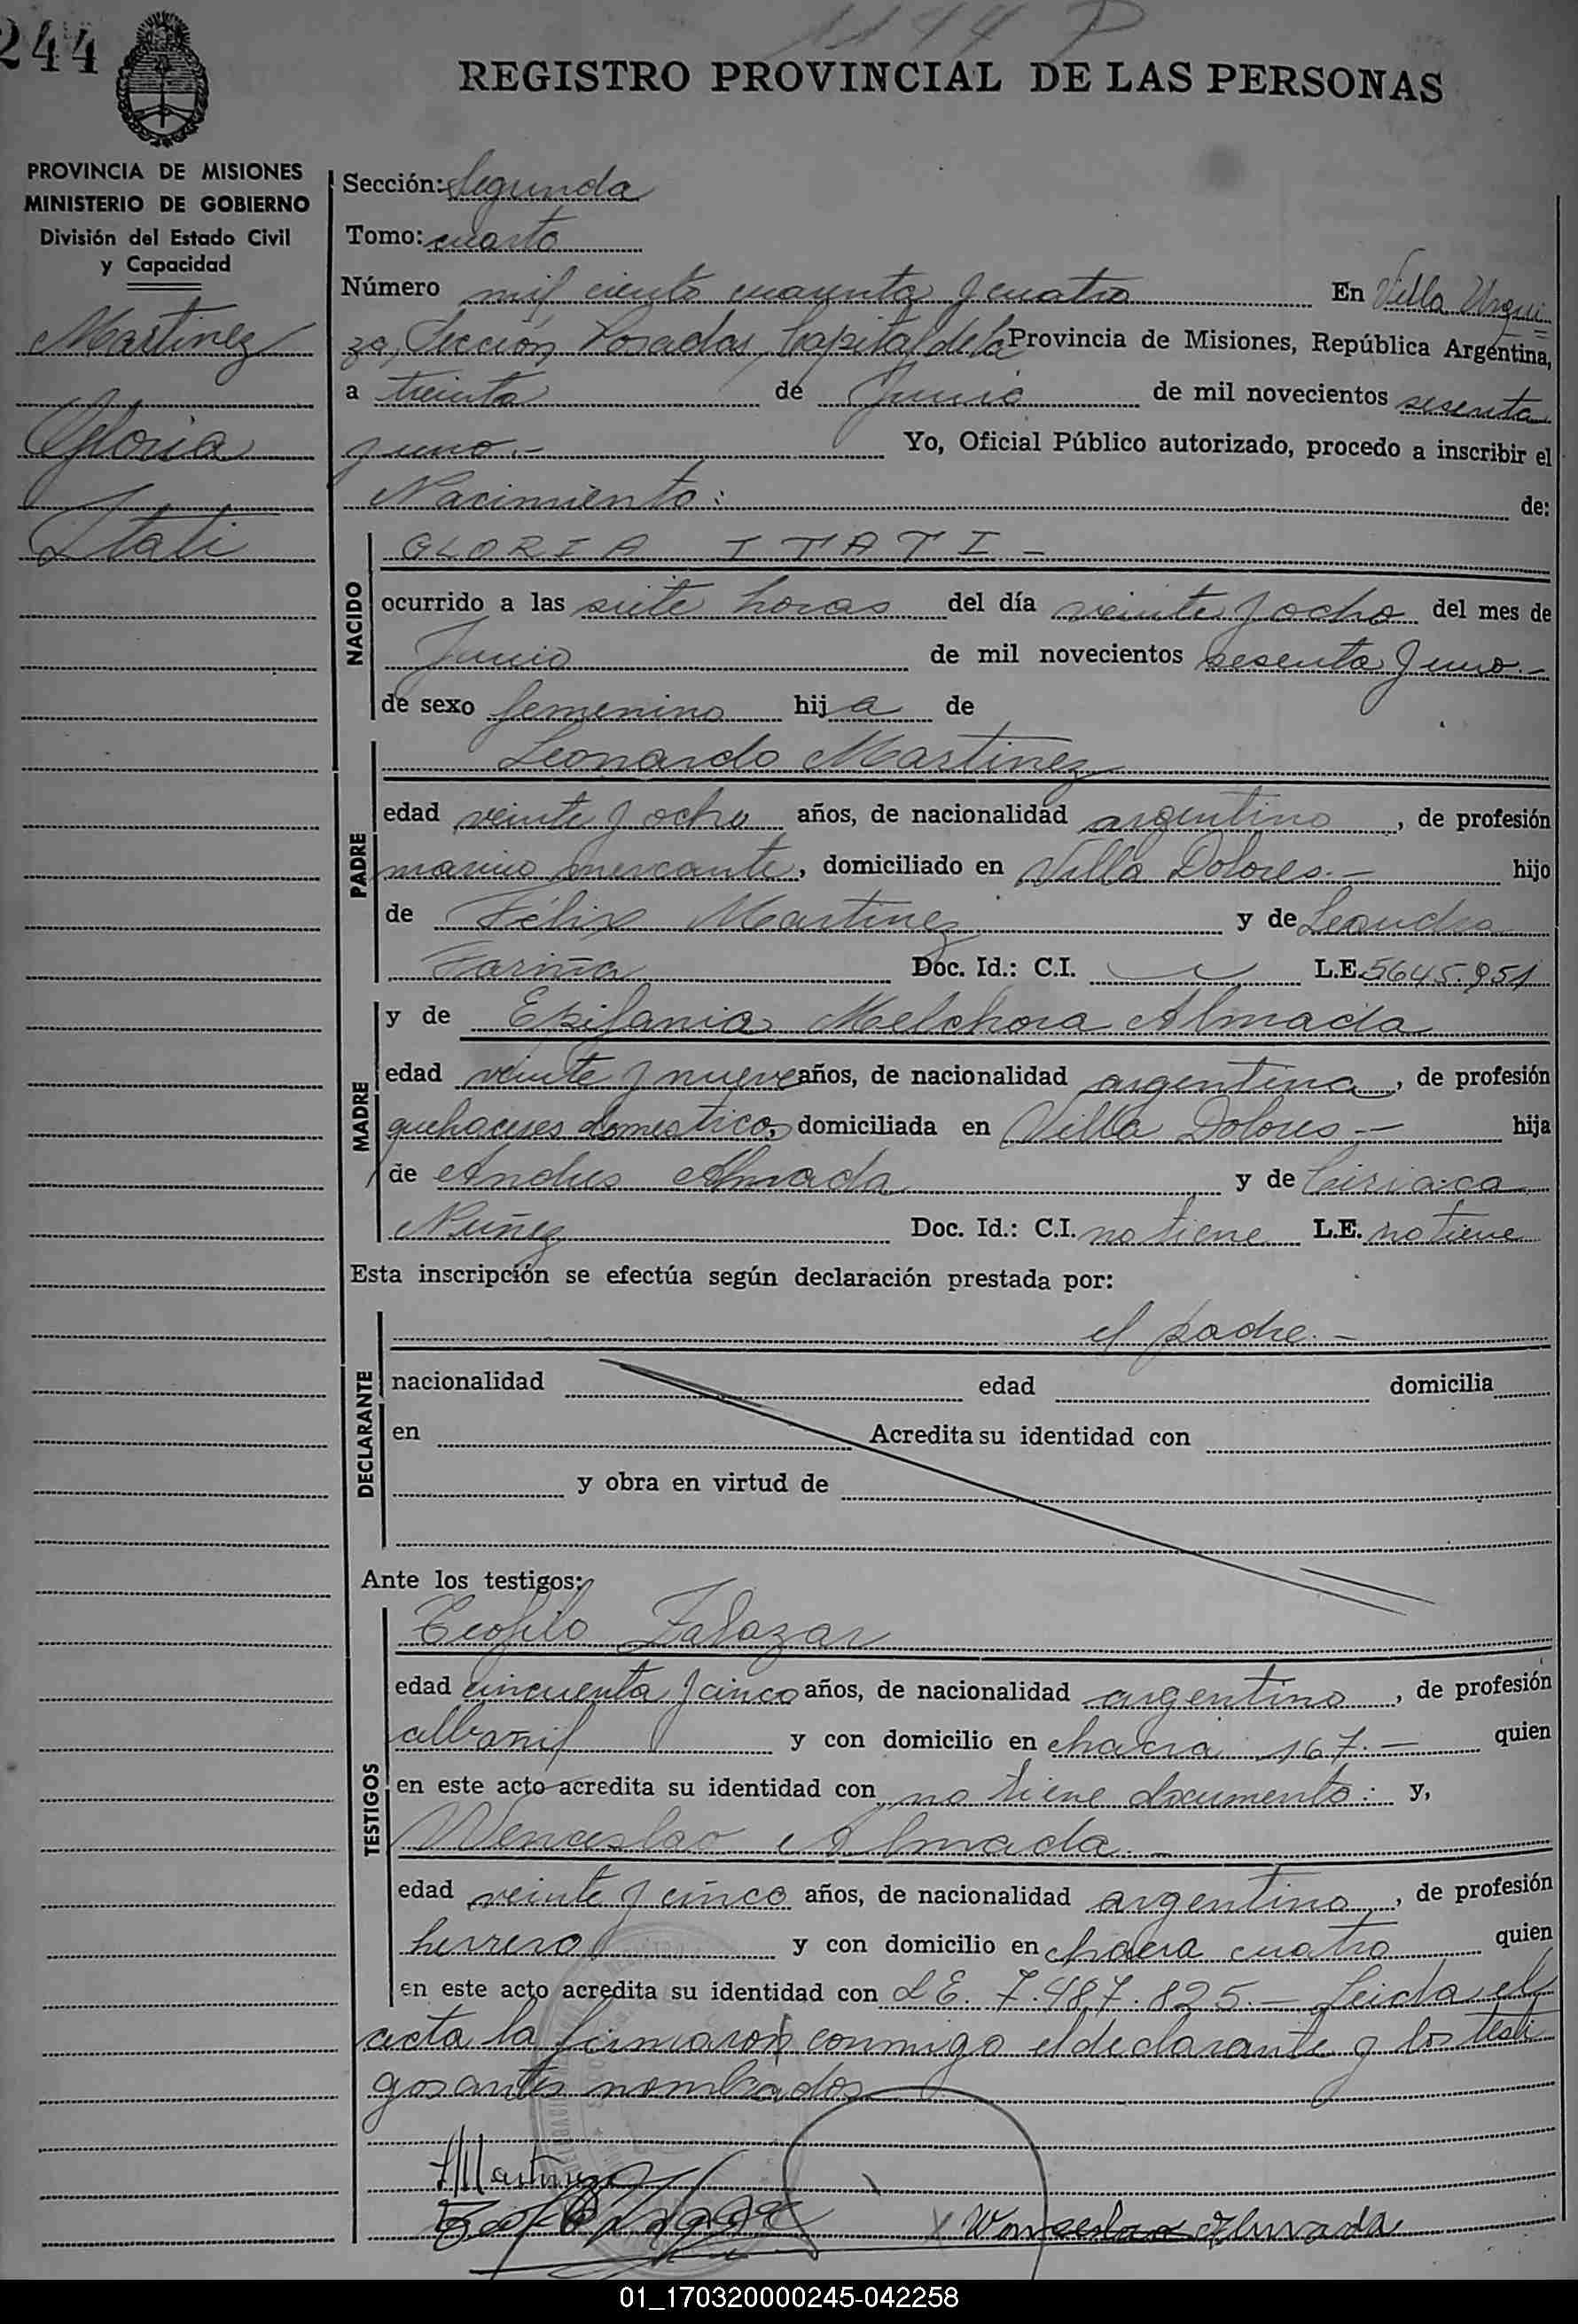 244
1144 P
REGISTRO PROVINCIAL DE LAS PERSONAS
PROVINCIA DE MISIONES
MINISTERIO DE GOBIERNO
División del Estado Civil
y Capacidad
Martinez
Gloria
Itati
Sección: Segunda
Tomo: cuarto
Número mil ciento cuarenta y cuatro En Villa Urqui=
za, Sección Posadas, Capital de la Provincia de Misiones, República Argentina,
a treinta de Junio de mil novecientos sesenta
y uno.- Yo, Oficial Público autorizado, procedo a inscribir el
Nacimiento: de:
NACIDO
GLORIA ITATI -
ocurrido a las siete horas del día veinte y ocho del mes de
Junio de mil novecientos sesenta y uno.-
de sexo femenino hija de
PADRE
Leonardo Martinez
edad veinte y ocho años, de nacionalidad argentino, de profesión
marino mercante, domiciliado en Villa Dolores.- hijo
de Félix Martinez y de Leandra
Fariña Doc. Id.: C.I. L.E. 5645.951
MADRE
y de Epifania Melchora Almada
edad veinte y nueve años, de nacionalidad argentina, de profesión
quehaceres domesticos, domiciliada en Villa Dolores.- hija
de Andres Almada y de Ciriaca
Nuñez Doc. Id.: C.I. no tiene L.E. no tiene
Esta inscripción se efectúa según declaración prestada por:
DECLARANTE
el padre.-
nacionalidad edad domicilia
en Acredita su identidad con
y obra en virtud de
Ante los testigos:
TESTIGOS
Teofilo Zalazar
edad cincuenta y cinco años, de nacionalidad argentino, de profesión
albañil y con domicilio en chacra 167.- quien
en este acto acredita su identidad con no tiene documento: y,
Wenceslao Almada.-
edad veinte y cinco años, de nacionalidad argentino, de profesión
herrero y con domicilio en chacra cuatro quien
en este acto acredita su identidad con L E. 7.487.825.- Leida el
acta la firmaron conmigo el declarante y los testi
gos antes nombrados
LMartinez
Wenceslao Almada
01_170320000245-042258